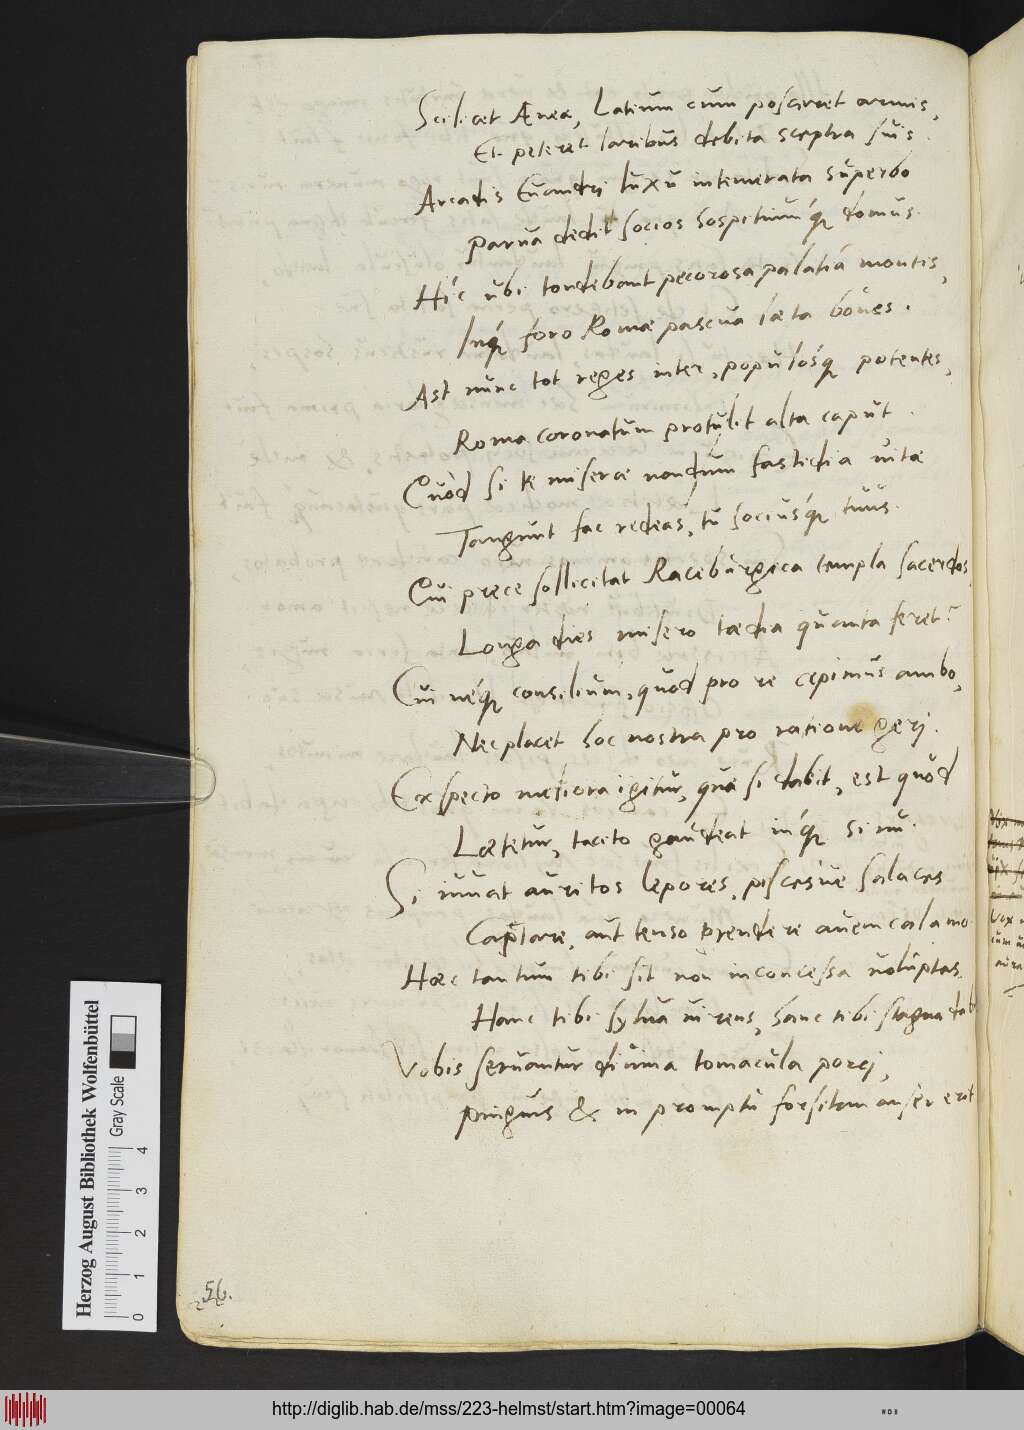 Scilicet Æneæ, Latium cum posceret armis,
Et peteret laribus debita sceptra suis.
Arcadis Euandri luxu intemerata superbo
Parua dedit socios hospitiumq́ue domus.
Híc ubi tondebant pecorosa palatia montis,
Inq́ue foro Romæ pascua læta boues.
Ast nunc tot reges inter, populosq́ue potentes,
Roma coronatum protulit alta caput.
Quòd si te miseræ nondum fastidia uitæ
Tangunt fac redeas, tu sociusq́ue tuus.
Qui prece sollicitat Raceburgica templa sacerdos,
Longa dies misero tædia quanta feret?
Cui neq́ue consilium, quod pro re cepimus ambo,
Nec placet hoc nostra pro ratione geri.
Exspecto meliora igitur, quæ si dabit, est quòd
Lætetur, tacito gaudeat inq́ue sinu.
Si iuuat auritos lepores, piscesue salaces
Captare, aut tenso prendere auem calamo
Hæc tantum tibi sit non inconcessa uoluptas.
Hanc tibi sylua uirens, hanc tibi stagna dab
Vobis seruantur diuina tomacula porci,
Pinguis & in promptu forsitan anser erit
56.
Herzog August Bibliothek Wolfenbüttel
Gray Scale
0 1 2 3 4
http://diglib.hab.de/mss/223-helmst/start.htm?image=00064